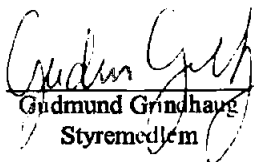 Gudmund Grindhaug
Styremedlem